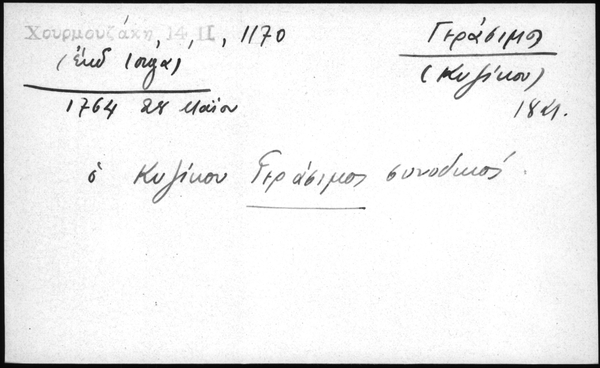 Χουρμουζάκη, 14 II, 1170
(ἐκδ Ιοργα)
1764 28 Μαΐου
Γεράσιμος
(Κυζίκου)
1821.
ὁ Κυζίκου Γεράσιμος συνοδικός.